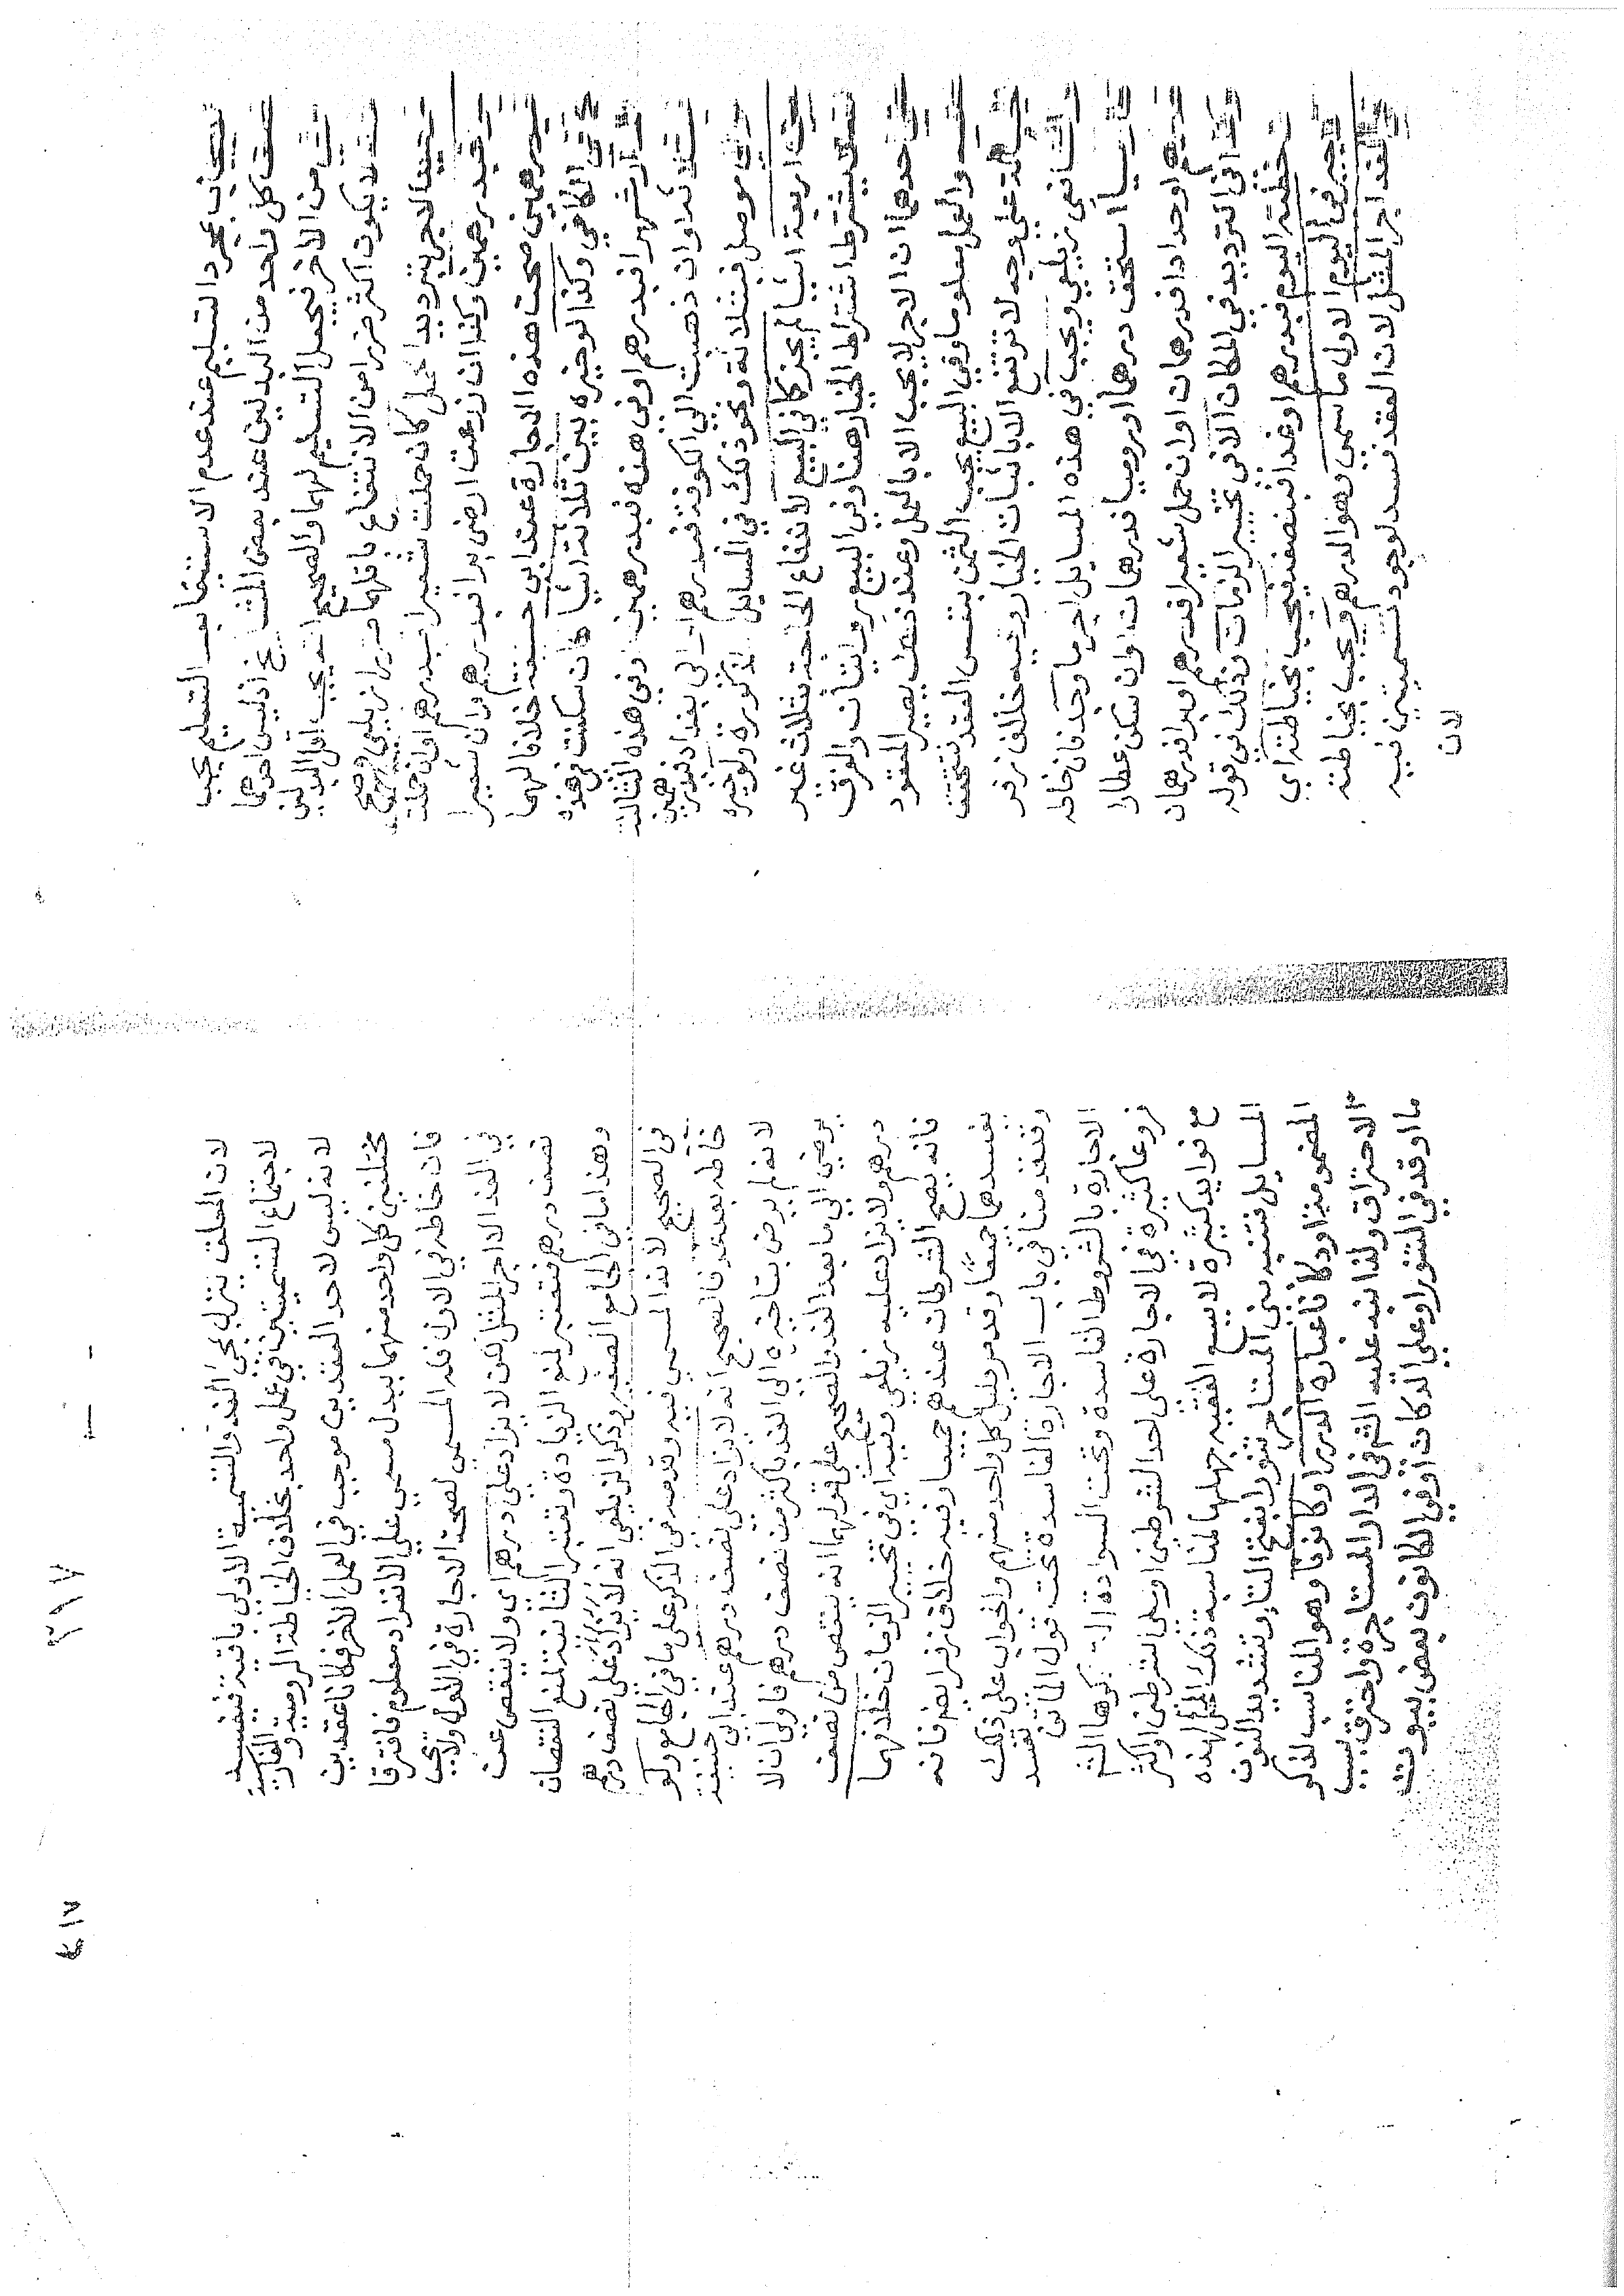 التسليمان بمجرد التسليم عند عدم الاستيفا يجب التسليم يجب
كل واحد من البدلين عند بعض المشايخ اذ ليس احدهما
من الاخر فيحصل التسليم لهما والصحيح انه يجب اقل البدلين
لا يكون اكثر ضررا من الانتفاع باقلهما ضررا زيلعي
الاجر بترديد الحمل كان حملت شعيرا فبدرهم وان حملت
فبدرهمين وكذا ان زرعت ارضى برا فبدرهم وان شعيرا
فبدرهمين صحت هذه الاجارة عند ابي حنيفة خلافا لهما
في الكافي وكذا لو خيره بين ثلاثة اشيا كان سكنت في هذه
شهرا فبدرهم او في هذه فبدرهمين او في هذه الثالثة
كذا وان ذهبت الى الكوفة فبدرهم الى بغداد فبدرهمين
موصل فبثلاثة ونحو ذلك في المسايل المذكورة ولو خيره
اربعة اشيا لم يجز كما في البيع لاندفاع الحاجة بثلاث غير
يشترط اشتراط الخيار هنا وفي البيع روايتان والفرق
احدهما ان الاجر لا يجب الا بالعمل وعند ذلك يصير المعقود
والعمل معلوما وفي البيع يجب الثمن بنفس العقد فتتحقق
على وجه لا ترتفع الا باثبات الخيار وفيه خلاف زفر
والشافعي زيلعي ويجب في هذه المسايل اجر ما وجد فان خاطه
فارسيا استحق درهما او روميا فدرهمان وان سكن عطارا
او حدادا فدرهمان وان حمل شعيرا فدرهم او برا فدرهمان
وكذا في الترديد في المكان الا في تخيير الزمان وذلك في قوله
خطته اليوم فبدرهم او غدا فبنصفه فيجب بخياطته اي
الاجير في اليوم الاول ما سمى وهو الدرهم ويجب بخياطته
في الغد اجر المثل لان العقد فسد لوجود تسميتين فيه
لان
لان المعلق ينزل بمجئ الغد والتسمية الاولى باقية فيفسد
لاجتماع التسميتين في عمل واحد بخلاف الخياطة الرومية والفارسية
لانه ليس لاحد العقدين موجب في العمل الاخر فكانا عقدين
مختلفين كل واحد منهما ببدل مسمى على الانفراد معلوم فافترقا
فان خاطه في الاول فله المسمى لصحة الاجارة في الاول ولا يجب
في الغد الا اجر المثل لكن لا يزاد على درهم اي ولا ينقص عن
نصف درهم فتعتبر لمنع الزيادة وتعتبر الثانية لمنع النقصان
وهذا ما في الجامع الصغير وذكر الزيلعي انه لا يزاد على نصف درهم
في الصحيح لانه المسمى فيه وقدمه في الذكر على ما في الجامع ولو
خاطه بعد غد فالصحيح انه لا يزاد على نصف درهم عند ابي حنيفة
لانه لم يرض بتاخيره الى الغد باكثر من نصف درهم فاولى ان لا
يرضى الى ما بعد الغد والصحيح على قولهما انه ينقص من نصف
درهم ولا يزاد عليه زيلعي وفيه اي في تخيير الزمان خلافهما
فانه يصح الشرطان عندهم جميعا وفيه خلاف زفر ايضا فانه
يفسدهما جميعا وقد مر دليل كل واحد منهم والجواب على ذلك
وتنعقد منافع في باب الاجارة الفاسدة تحت قول الماتن تفسد
الاجارة بالشروط الفاسدة وتحت السوادة التي ذكرها الشم
فروعا كثيرة في الاجارة على احد الشرطين او على شرطين او اكثر
مع فوايد كثيرة لا يسع الفقيه جهلها لمناسبة ذلك المحل لهذه
المسايل فتنبه بنى المستاجر تنورا بفتح التا وتشديد النون
المضمومة او دكانا عبارة الدرر او كانونا وهو المناسب لذكر
الاحتراق ولذا نبه عليه الشم في الدار المستاجرة واحترق بسبب
ما اوقد في التنور او على الدكان او في الكانون بعض بيوت
٣١٧
٣١٧